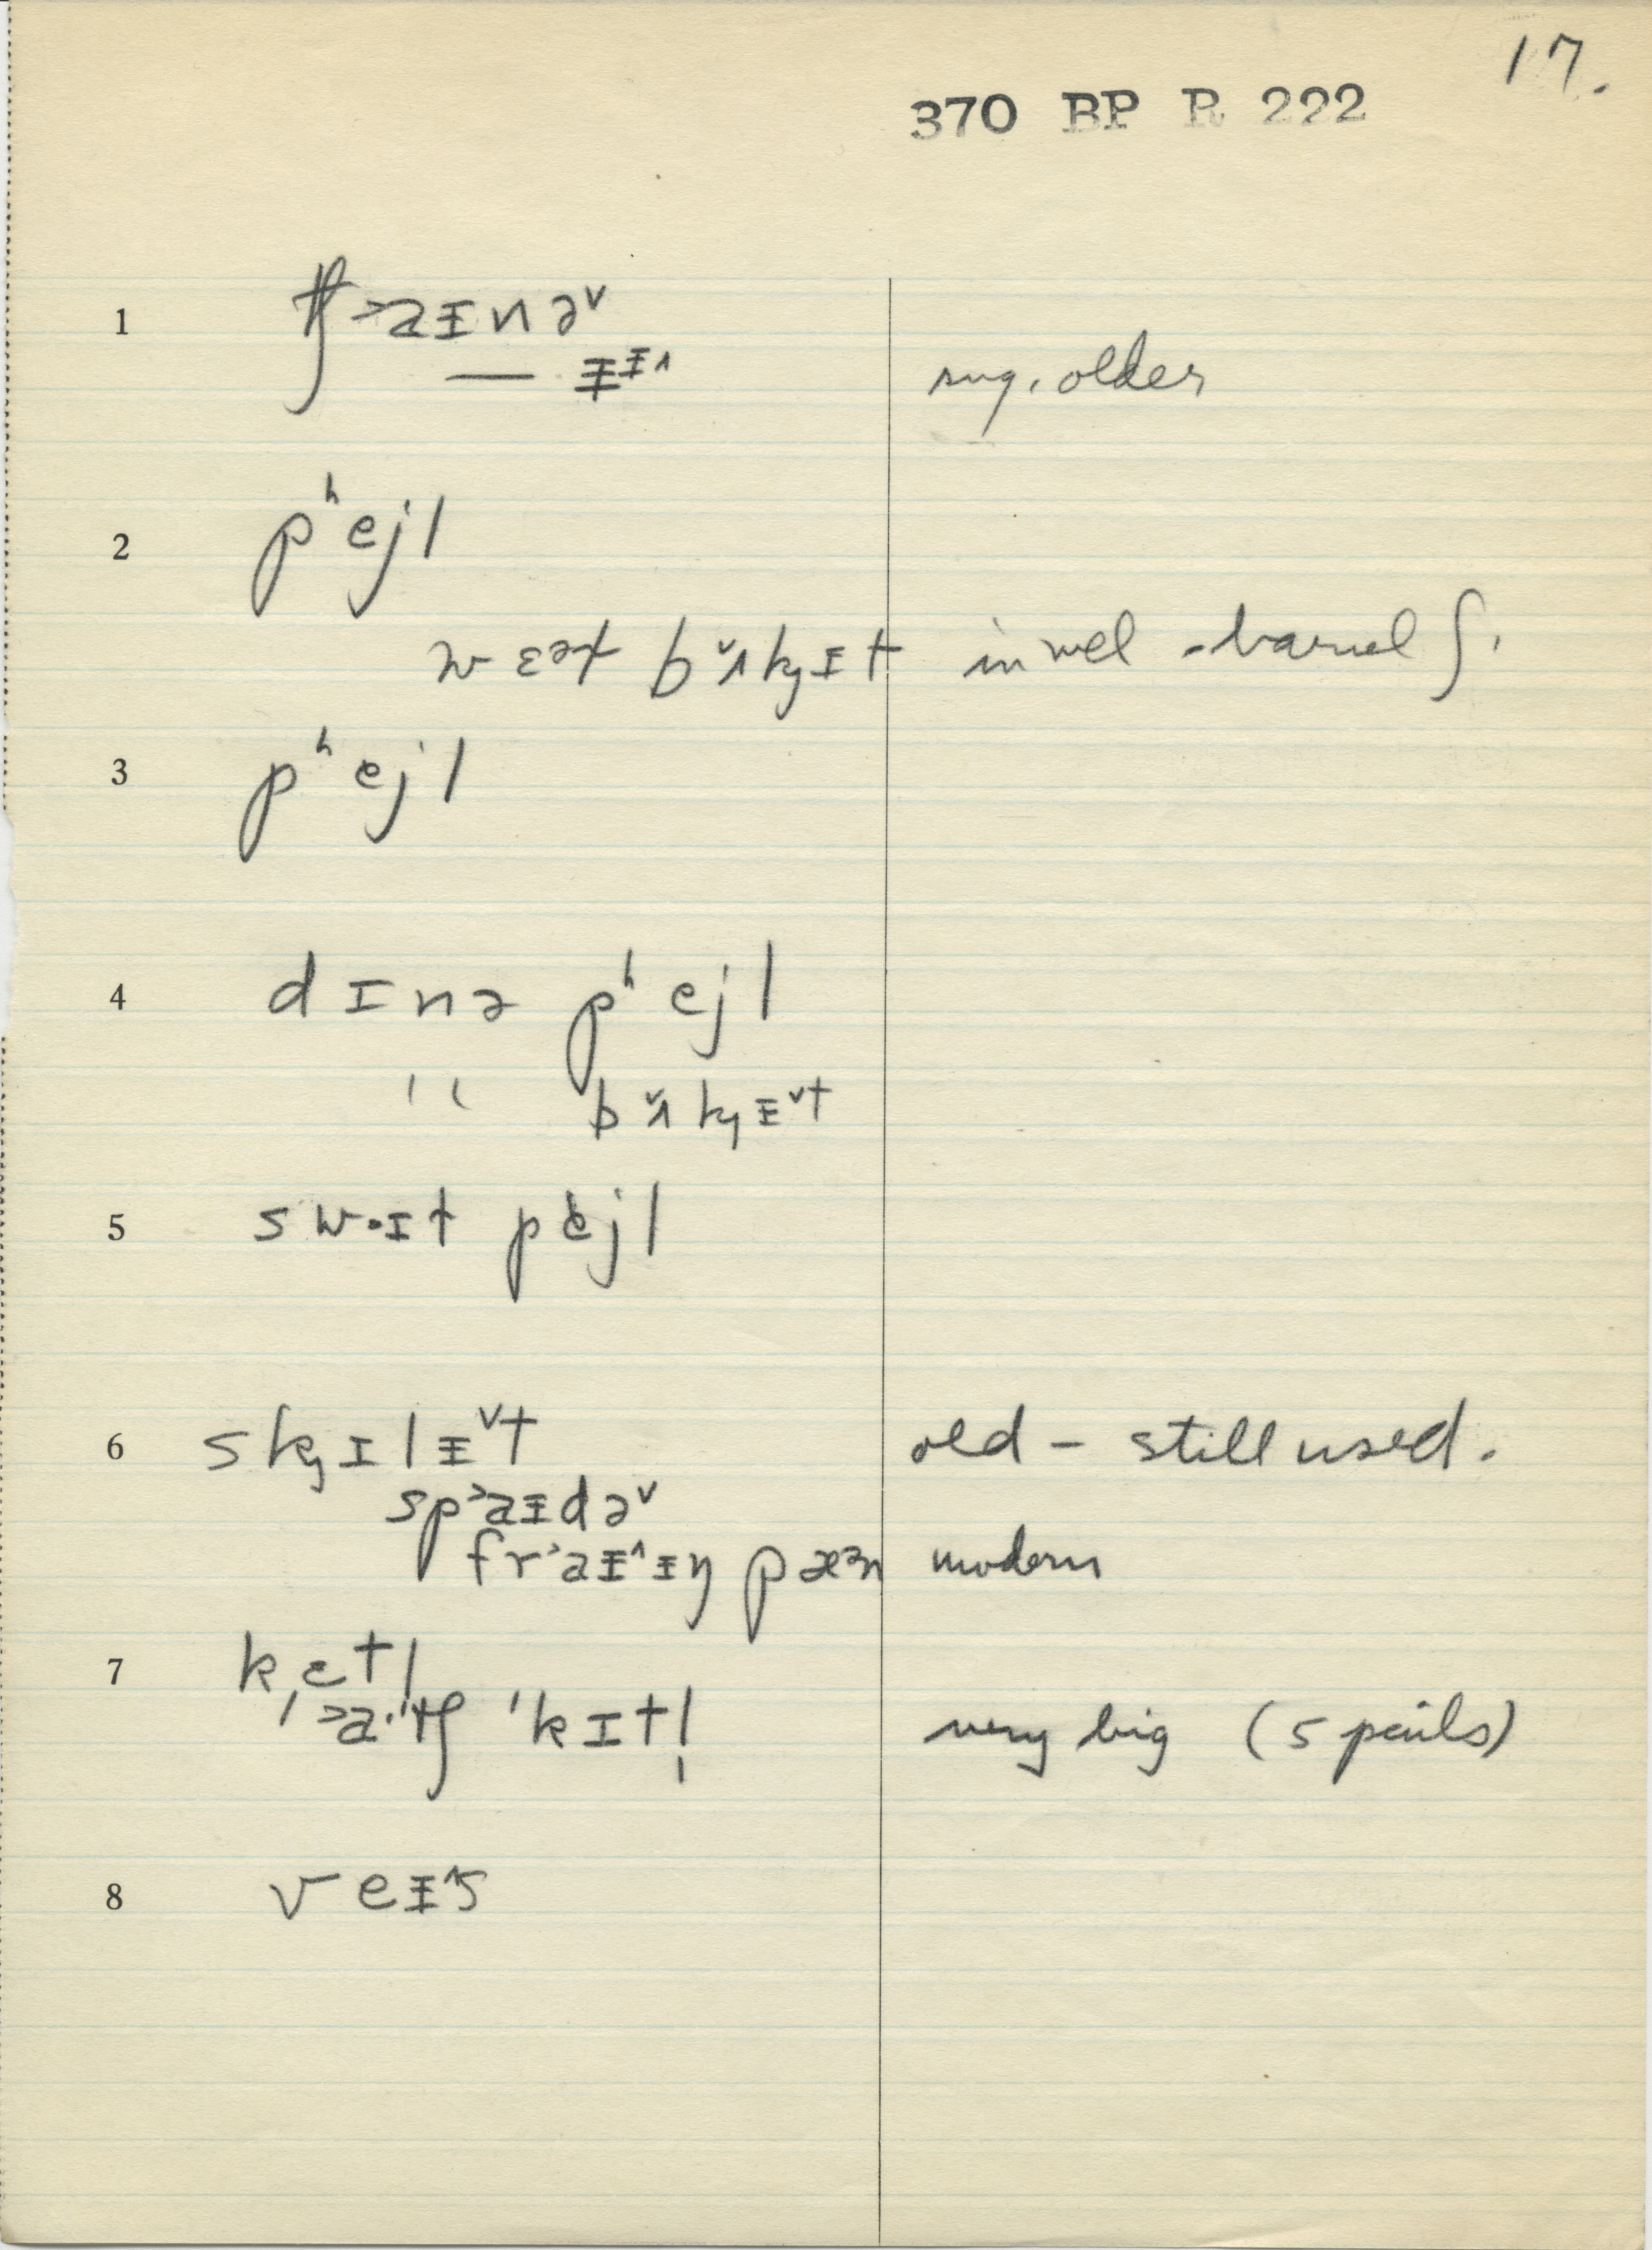 17.
370 BP R 222
1 tʃ˃aᵻnə˅
— ᵻᵻ˄ sug. older
2 pʰejl
wɛətɚ bʌ̌kᵻt in well -barrel ʃ.
3 pʰejl
4 dɪnə pʰejl
" bʌ̌kᵻ˅t
5 sw·ɪt pejl
6 skɪlᵻ˅t old – still used.
sp˃aᵻdə˅
fr˃aᵻ˄ᵻŋ pæᵊn modern
7 kɛtl
ˌ˃a·ɪtʃ ˈkɪtl̩ very big (5 pails)
8 veᵻ˄s